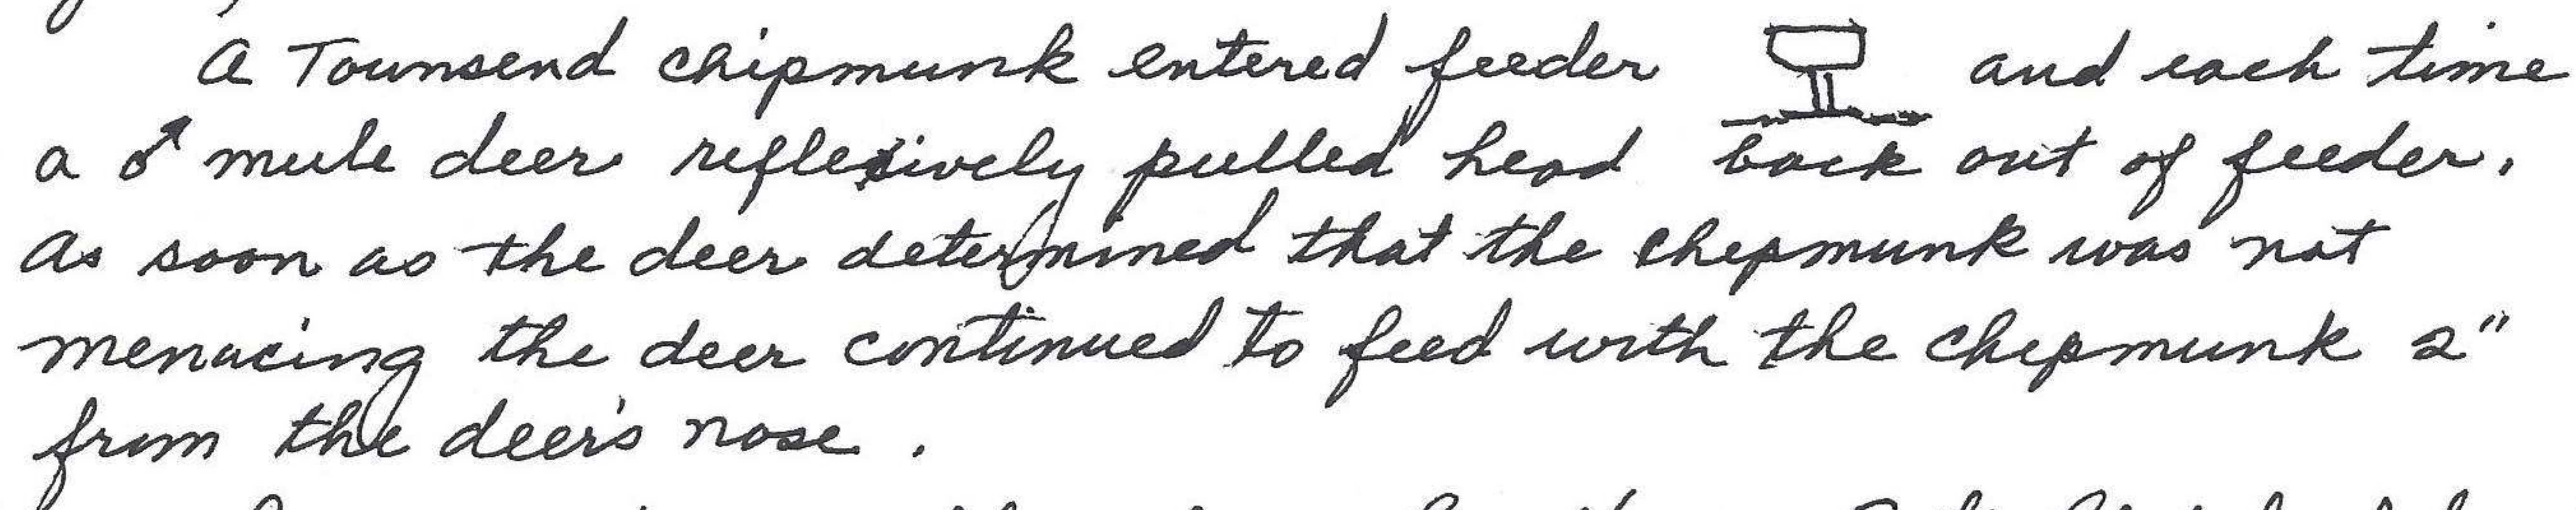 A Townsend chipmunk entered feeder and each time
a ♂ mule deer reflexively pulled head back out of feeder.
As soon as the deer determined that the chipmunk was not
menacing the deer continued to feed with the chipmunk 2"
from the deer's nose.